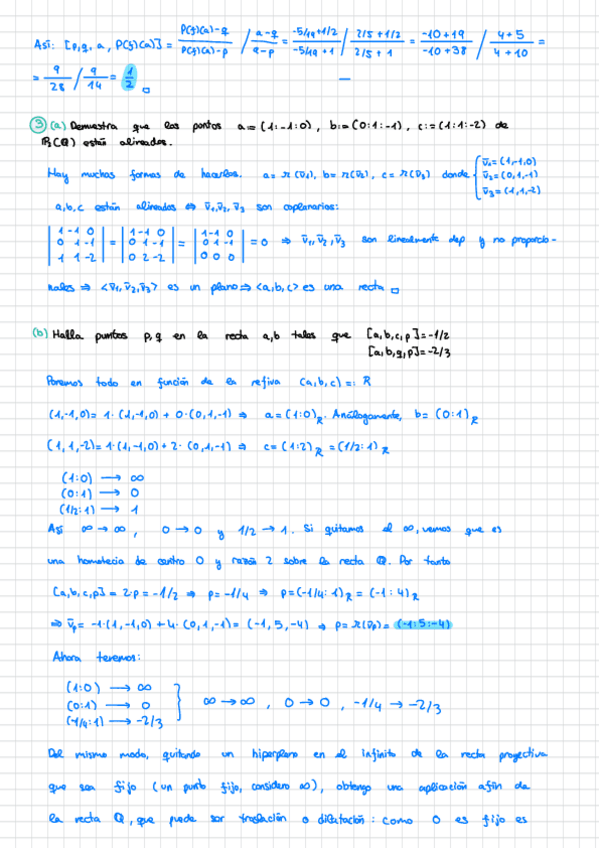 Así: [p,q,a, P(f)(a)] = P(f)(a)-q / P(f)(a)-p / a-q / a-p = -5/19+1/2 / -5/19+1 / 2/5+1/2 / 2/5+1 = -10+19 / -10+38 / 4+5 / 4+10 =
= 9/28 / 9/14 = 1/2 □
③ (a) Demuestra que los puntos a:=(1:-1:0), b:=(0:1:-1), c:=(1:1:-2) de
P₂(Q) están alineados.
Hay muchas formas de hacerlos. a=π(v̄₁), b=π(v̄₂), c=π(v̄₃) donde { v̄₁=(1,-1,0)
v̄₂=(0,1,-1)
v̄₃=(1,1,-2)
a,b,c están alineados ⇔ v̄₁,v̄₂,v̄₃ son coplanarios:
|1 -1 0| |1 -1 0| |1 -1 0|
|0 1 -1| = |0 1 -1| = |0 1 -1| = 0 ⇒ v̄₁,v̄₂,v̄₃ son linealmente dep y no proporcio-
|1 1 -2| |0 2 -2| |0 0 0|
nales ⇒ <v̄₁,v̄₂,v̄₃> es un plano ⇒ <a,b,c> es una recta □
(b) Halla puntos p,q en la recta a,b tales que [a,b,c,p]=-1/2
[a,b,q,p]=-2/3
Ponemos todo en función de la refiva (a,b,c)=:R
(1,-1,0)= 1·(1,-1,0) + 0·(0,1,-1) ⇒ a=(1:0)R. Análogamente, b=(0:1)R
(1,1,-2)=1·(1,-1,0)+2·(0,1,-1) ⇒ c=(1:2)R=(1/2:1)R
(1:0) → ∞
(0:1) → 0
(1/2:1) → 1
Así ∞→∞, 0→0 y 1/2→1. Si quitamos el ∞, vemos que es
una homotecia de centro 0 y razón 2 sobre la recta Q. Por tanto
[a,b,c,p]=2·p=-1/2 ⇒ p=-1/4 ⇒ p=(-1/4:1)R=(-1:4)R
⇒ v̄p=-1·(1,-1,0)+4·(0,1,-1)=(-1,5,-4) ⇒ p=π(v̄p)=(-1:5:-4)
Ahora tenemos:
(1:0) → ∞
(0:1) → 0 } ∞→∞, 0→0, -1/4→-2/3
(-1/4:1) → -2/3
Del mismo modo, quitando un hiperplano en el infinito de la recta proyectiva
que sea fijo (un punto fijo, considero ∞), obtengo una aplicación afín de
la recta Q, que puede ser traslación o dilatación: como 0 es fijo es